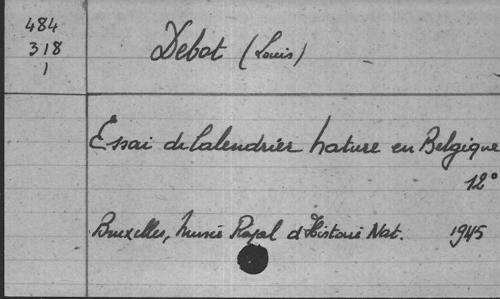 484
318
1
Debot (Louis)
Essai de Calendrier nature en Belgique
12°
Bruxelles, Musée Royal d'Histoire Nat. 1945